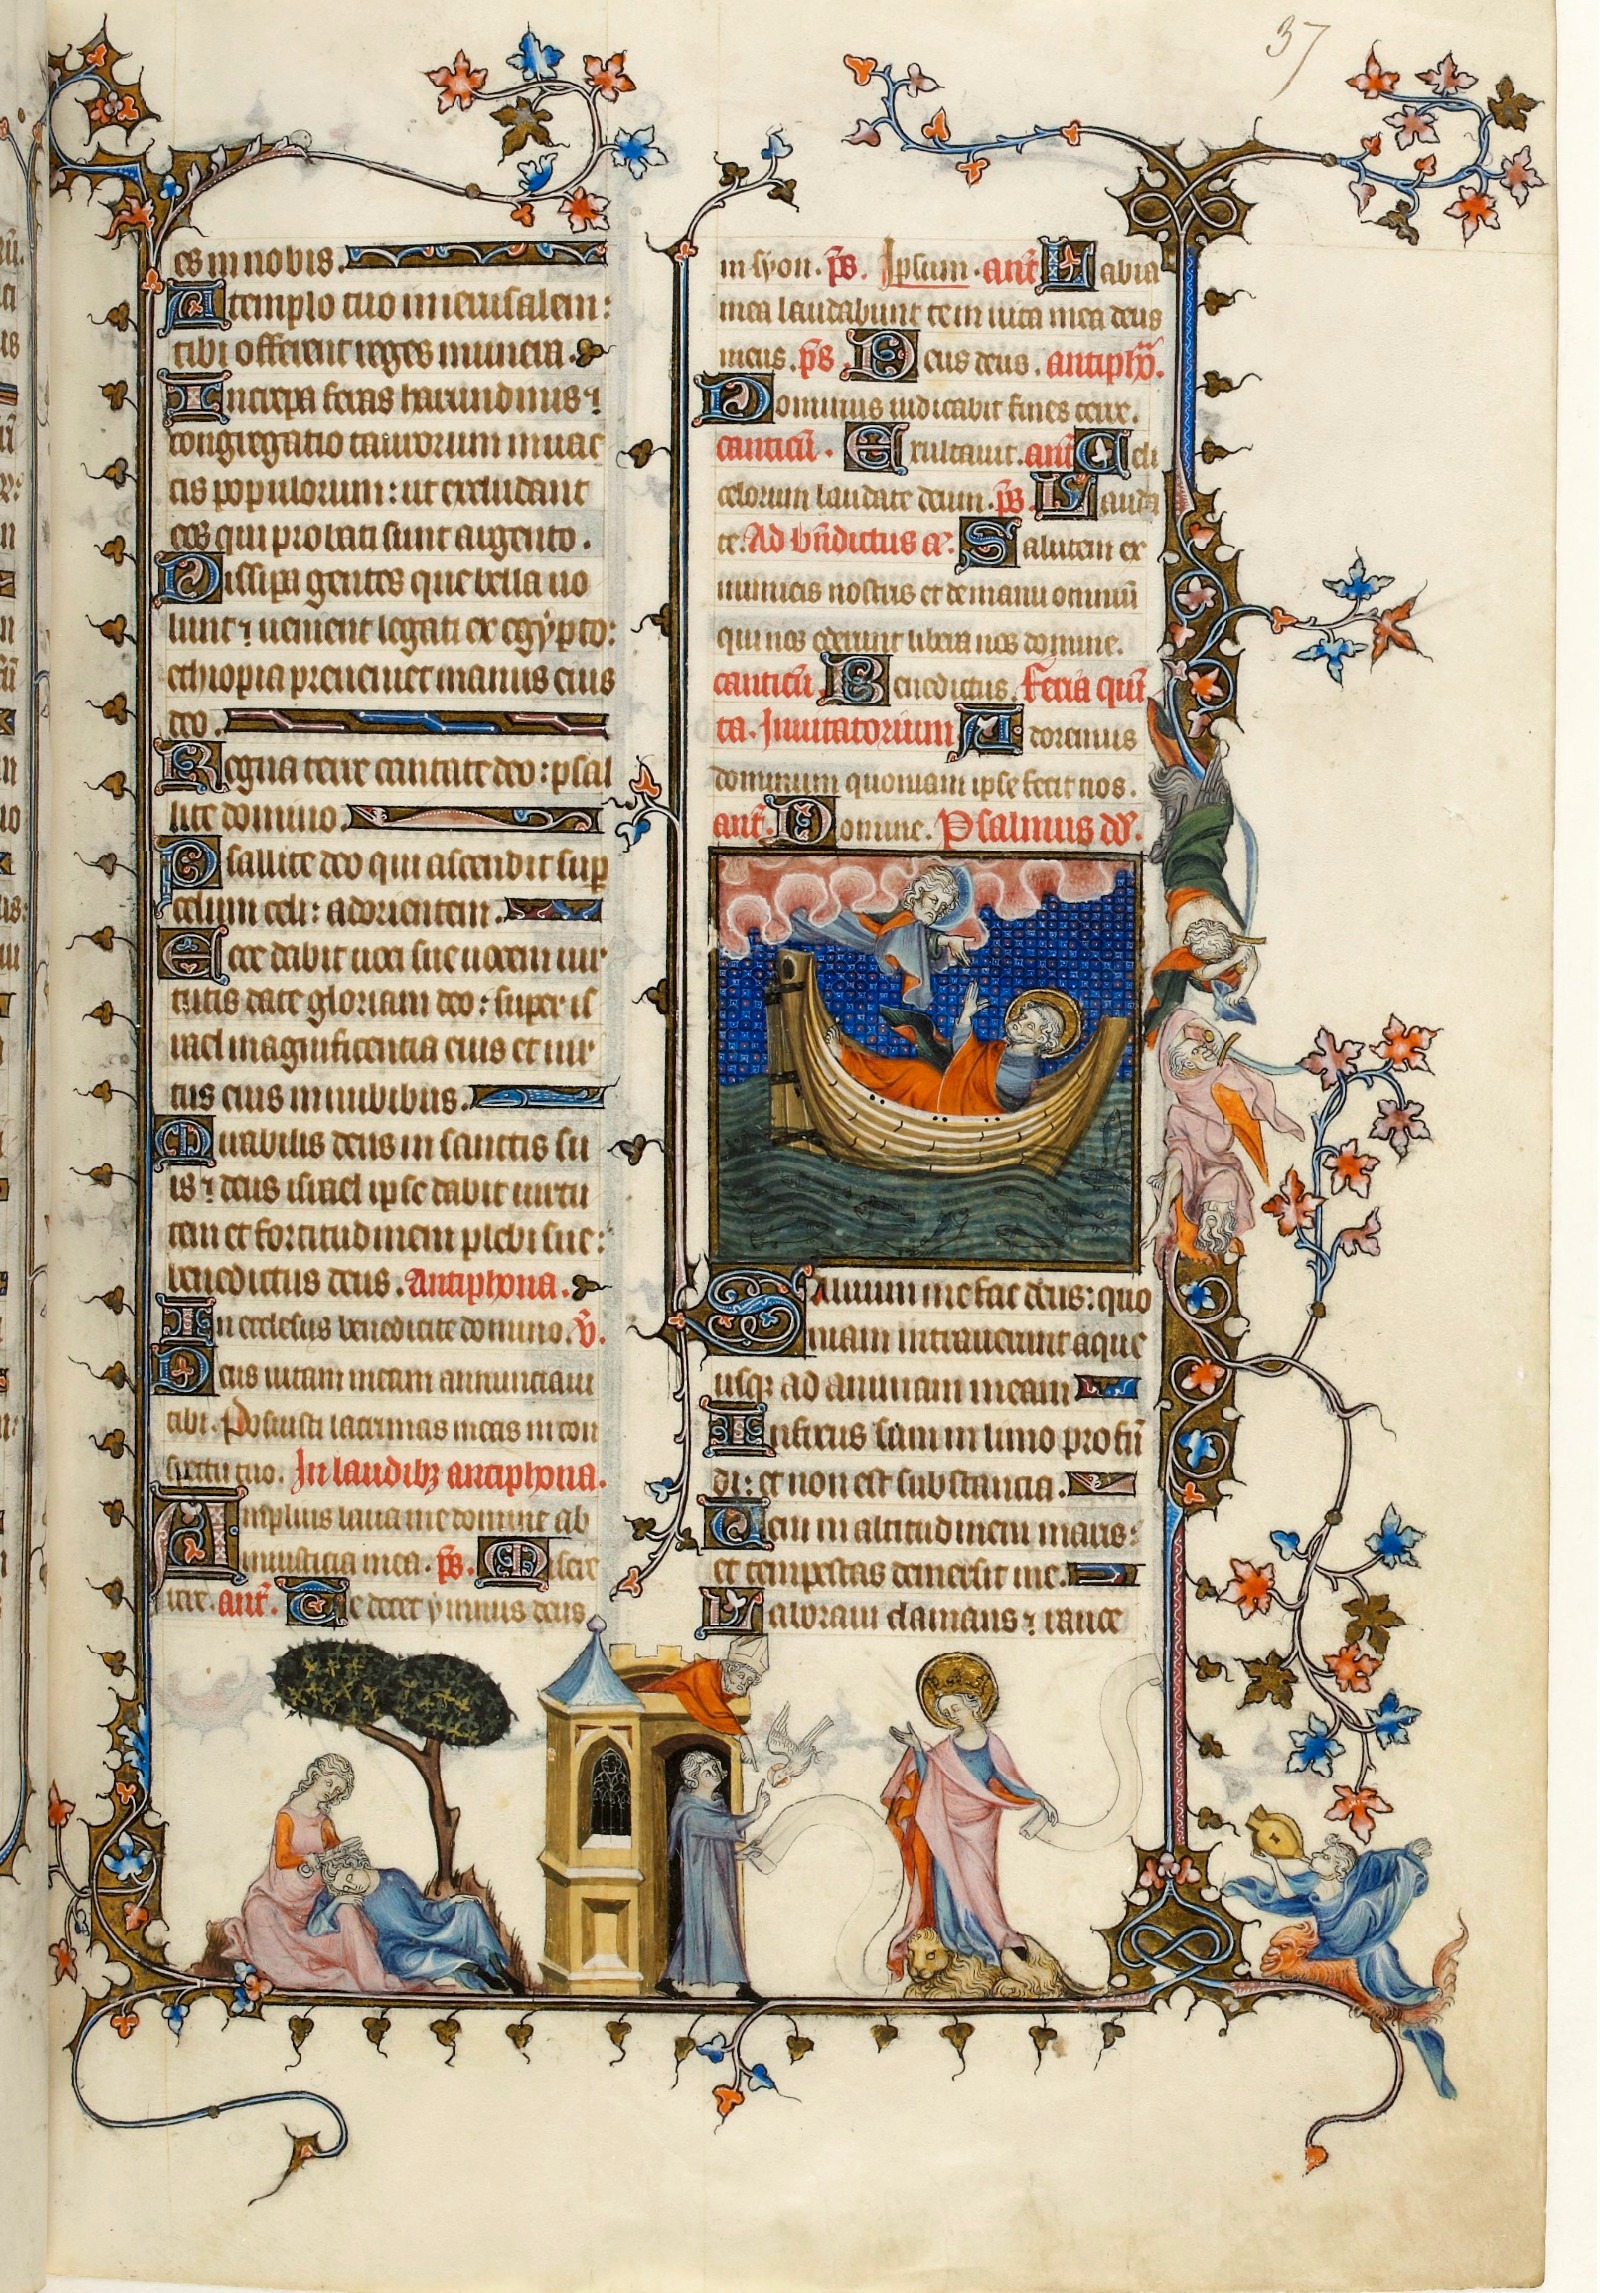 37
es in nobis.
A templo tuo in ierusalem:
tibi offerent reges munera.
Increpa feras harundinis ⁊
congregatio taurorum in uac
cis populorum: ut excludant
eos qui probati sunt argento.
Dissipa gentes que bella uo
lunt ⁊ uenient legati ex egypto:
ethiopia preueniet manus eius
deo.
Regna terre cantate deo: psal
lite domino.
Psallite deo qui ascendit sup̄
celum celi: ad orientem.
Ecce dabit uoci sue uocem uir
tutis date gloriam deo: super is
rael magnificentia eius et uir
tus eius in nubibus.
Mirabilis deus in sanctis su
is ⁊ deus israel ipse dabit uirtu
tem et fortitudinem plebi sue:
benedictus deus. Antiphona.
In ecclesiis benedicite domino. v̄.
Deus uitam meam annunciaui
tibi. Posuisti lacrimas meas in con
spectu tuo. In laudibꝫ antiphona.
Amplius laua me domine ab
iniusticia mea. p̄s. Misere
rere. ant̄. Te decet ymnus deus
in syon. p̄s. Ipsum. ant̄ Labia
mea laudabunt te in uita mea deus
meus. p̄s. Deus deus. antiphō.
Dominus iudicabit fines terre.
canticū. Exultauit. ant̄ Celi
celorum laudate deum. p̄s. Lauda
te. Ad bn̄dictus a. Salutem ex
inimicis nostris et de manu omniū
qui nos oderunt libera nos domine.
canticū. Benedictus. Feria quin̄
ta. Inuitatorium Adoremus
dominum quoniam ipse fecit nos.
ant̄. Domine. Psalmus dd̄.
Saluum me fac deus: quo
niam intrauerunt aque
usqꝫ ad animam meam
Infixus sum in limo profū
di: et non est substancia.
Ueni in altitudinem maris:
et tempestas demersit me.
Laboraui clamans ⁊ rauce